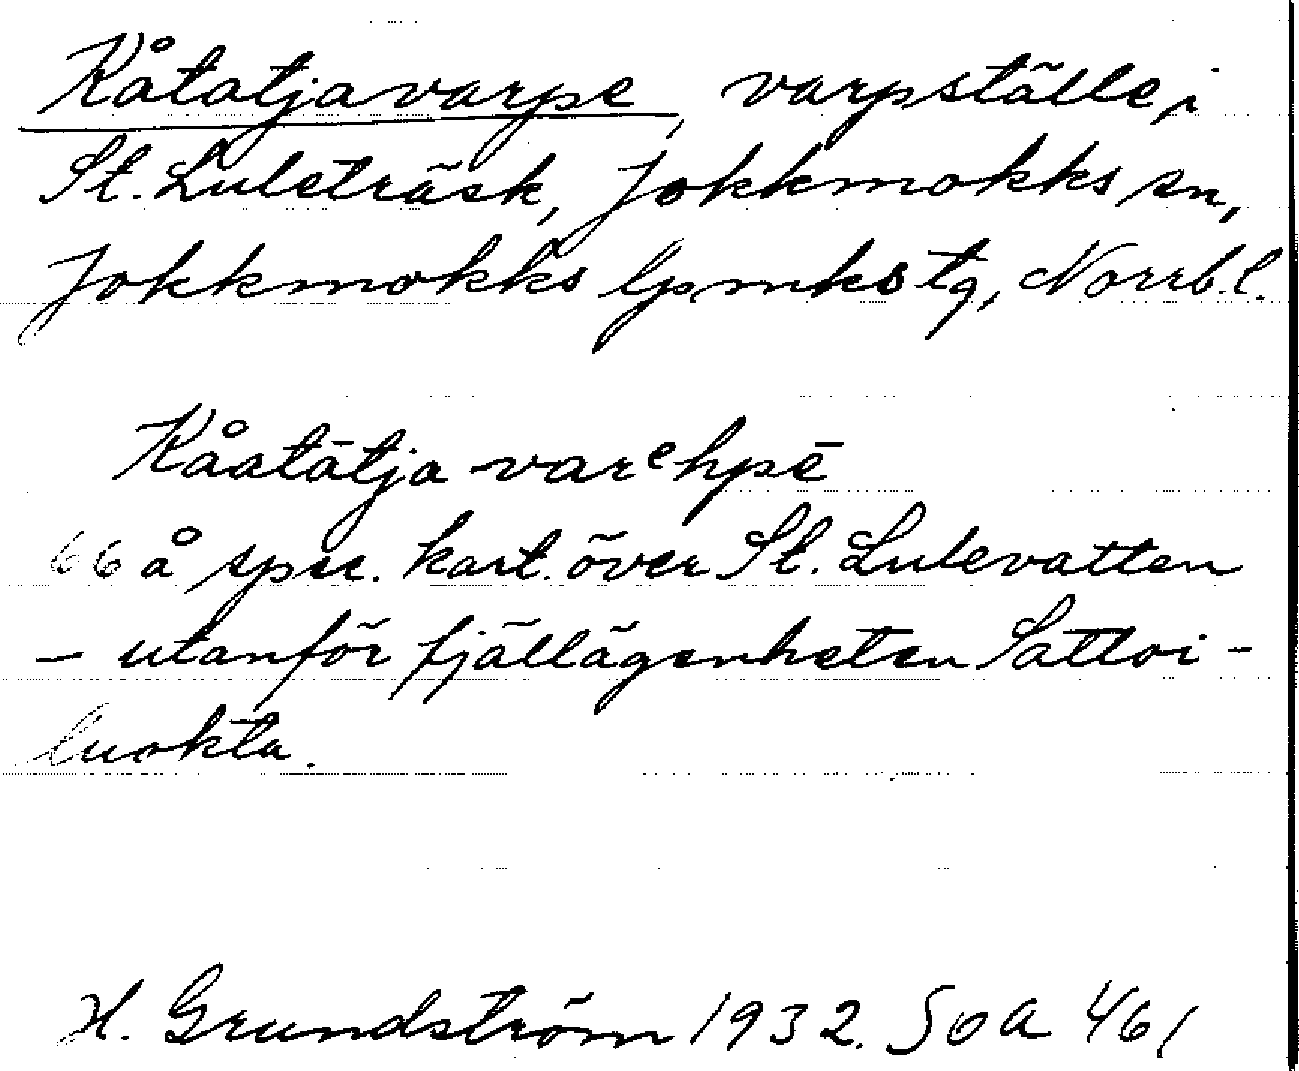 Kåtatjavarpe, varpställe i
St. Luleträsk, Jokkmokks sn,
Jokkmokks lpmks tg, Norrb.l.
Kåatātja-varᵉhpē
66 å spec. kart. över St. Lulevatten
- utanför fjällägenheten Sattoi-
luokta.
H. Grundström 1932. SOA 461